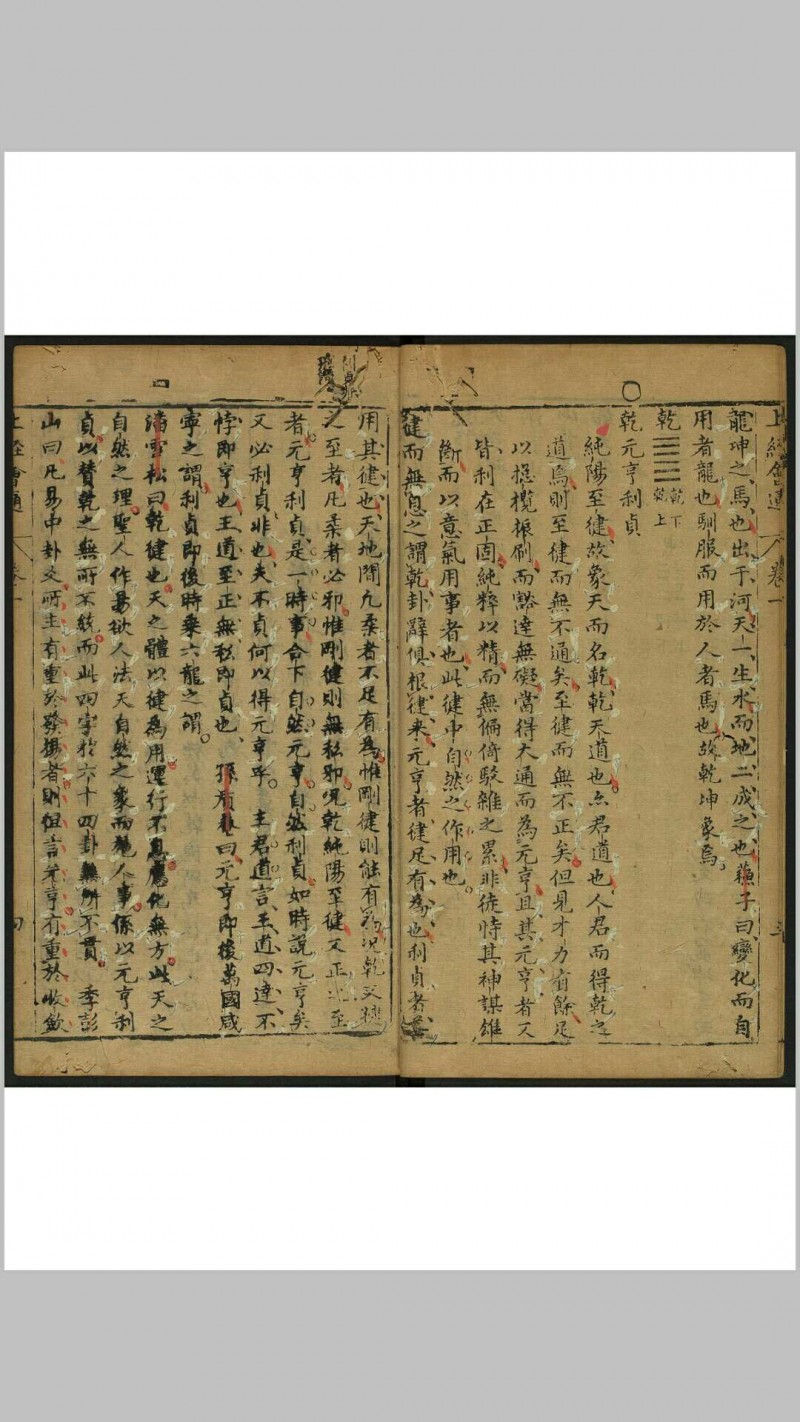 上經會通 卷一
龍坤之馬也出于河天一生水而地二成之也蘇子曰變化而自
用者龍也馴服而用於人者馬也故乾坤象焉
乾 乾下 乾上
乾元亨利貞
純陽至健故象天而名乾乾天道也亦君道也人君而得乾之
道焉則至健而無不通矣至健而無不正矣但見才力有餘足
以摠攬振刷而豁達無礙當得大通而為元亨且其元亨者又
皆利在正固純粹以精而無偏倚駁雜之累非徒恃其神謀雄
斷而以意氣用事者也此健中自然之作用也
健而無息之謂乾卦辭俱根健來元亨者健足有為也利貞者善
用其健也天地間凡柔者不足有為惟剛健則能有為况乾又健
之至者凡柔者必邪惟剛健則無私邪况乾純陽至健又正之至
者元亨利貞是一時事合下自然元亨自然利貞如時說元亨矣
又必利貞非也夫不貞何以得元亨乎 主君道言王道四達不
悖即亨也王道至正無私即貞也 孫質菴曰元亨即後萬國咸
寧之謂利貞即後時乘六龍之謂
潘雪松曰乾健也天之體以健為用運行不息應化無方此天之
自然之理聖人作易欲人法天自然之象而施人事係以元亨利
貞以贊乾之無所不統而此四字於六十四卦無所不貫 季彭
山曰凡易中卦爻所主有重於發揚者則但言元亨有重於收斂
上經會通 卷一 四